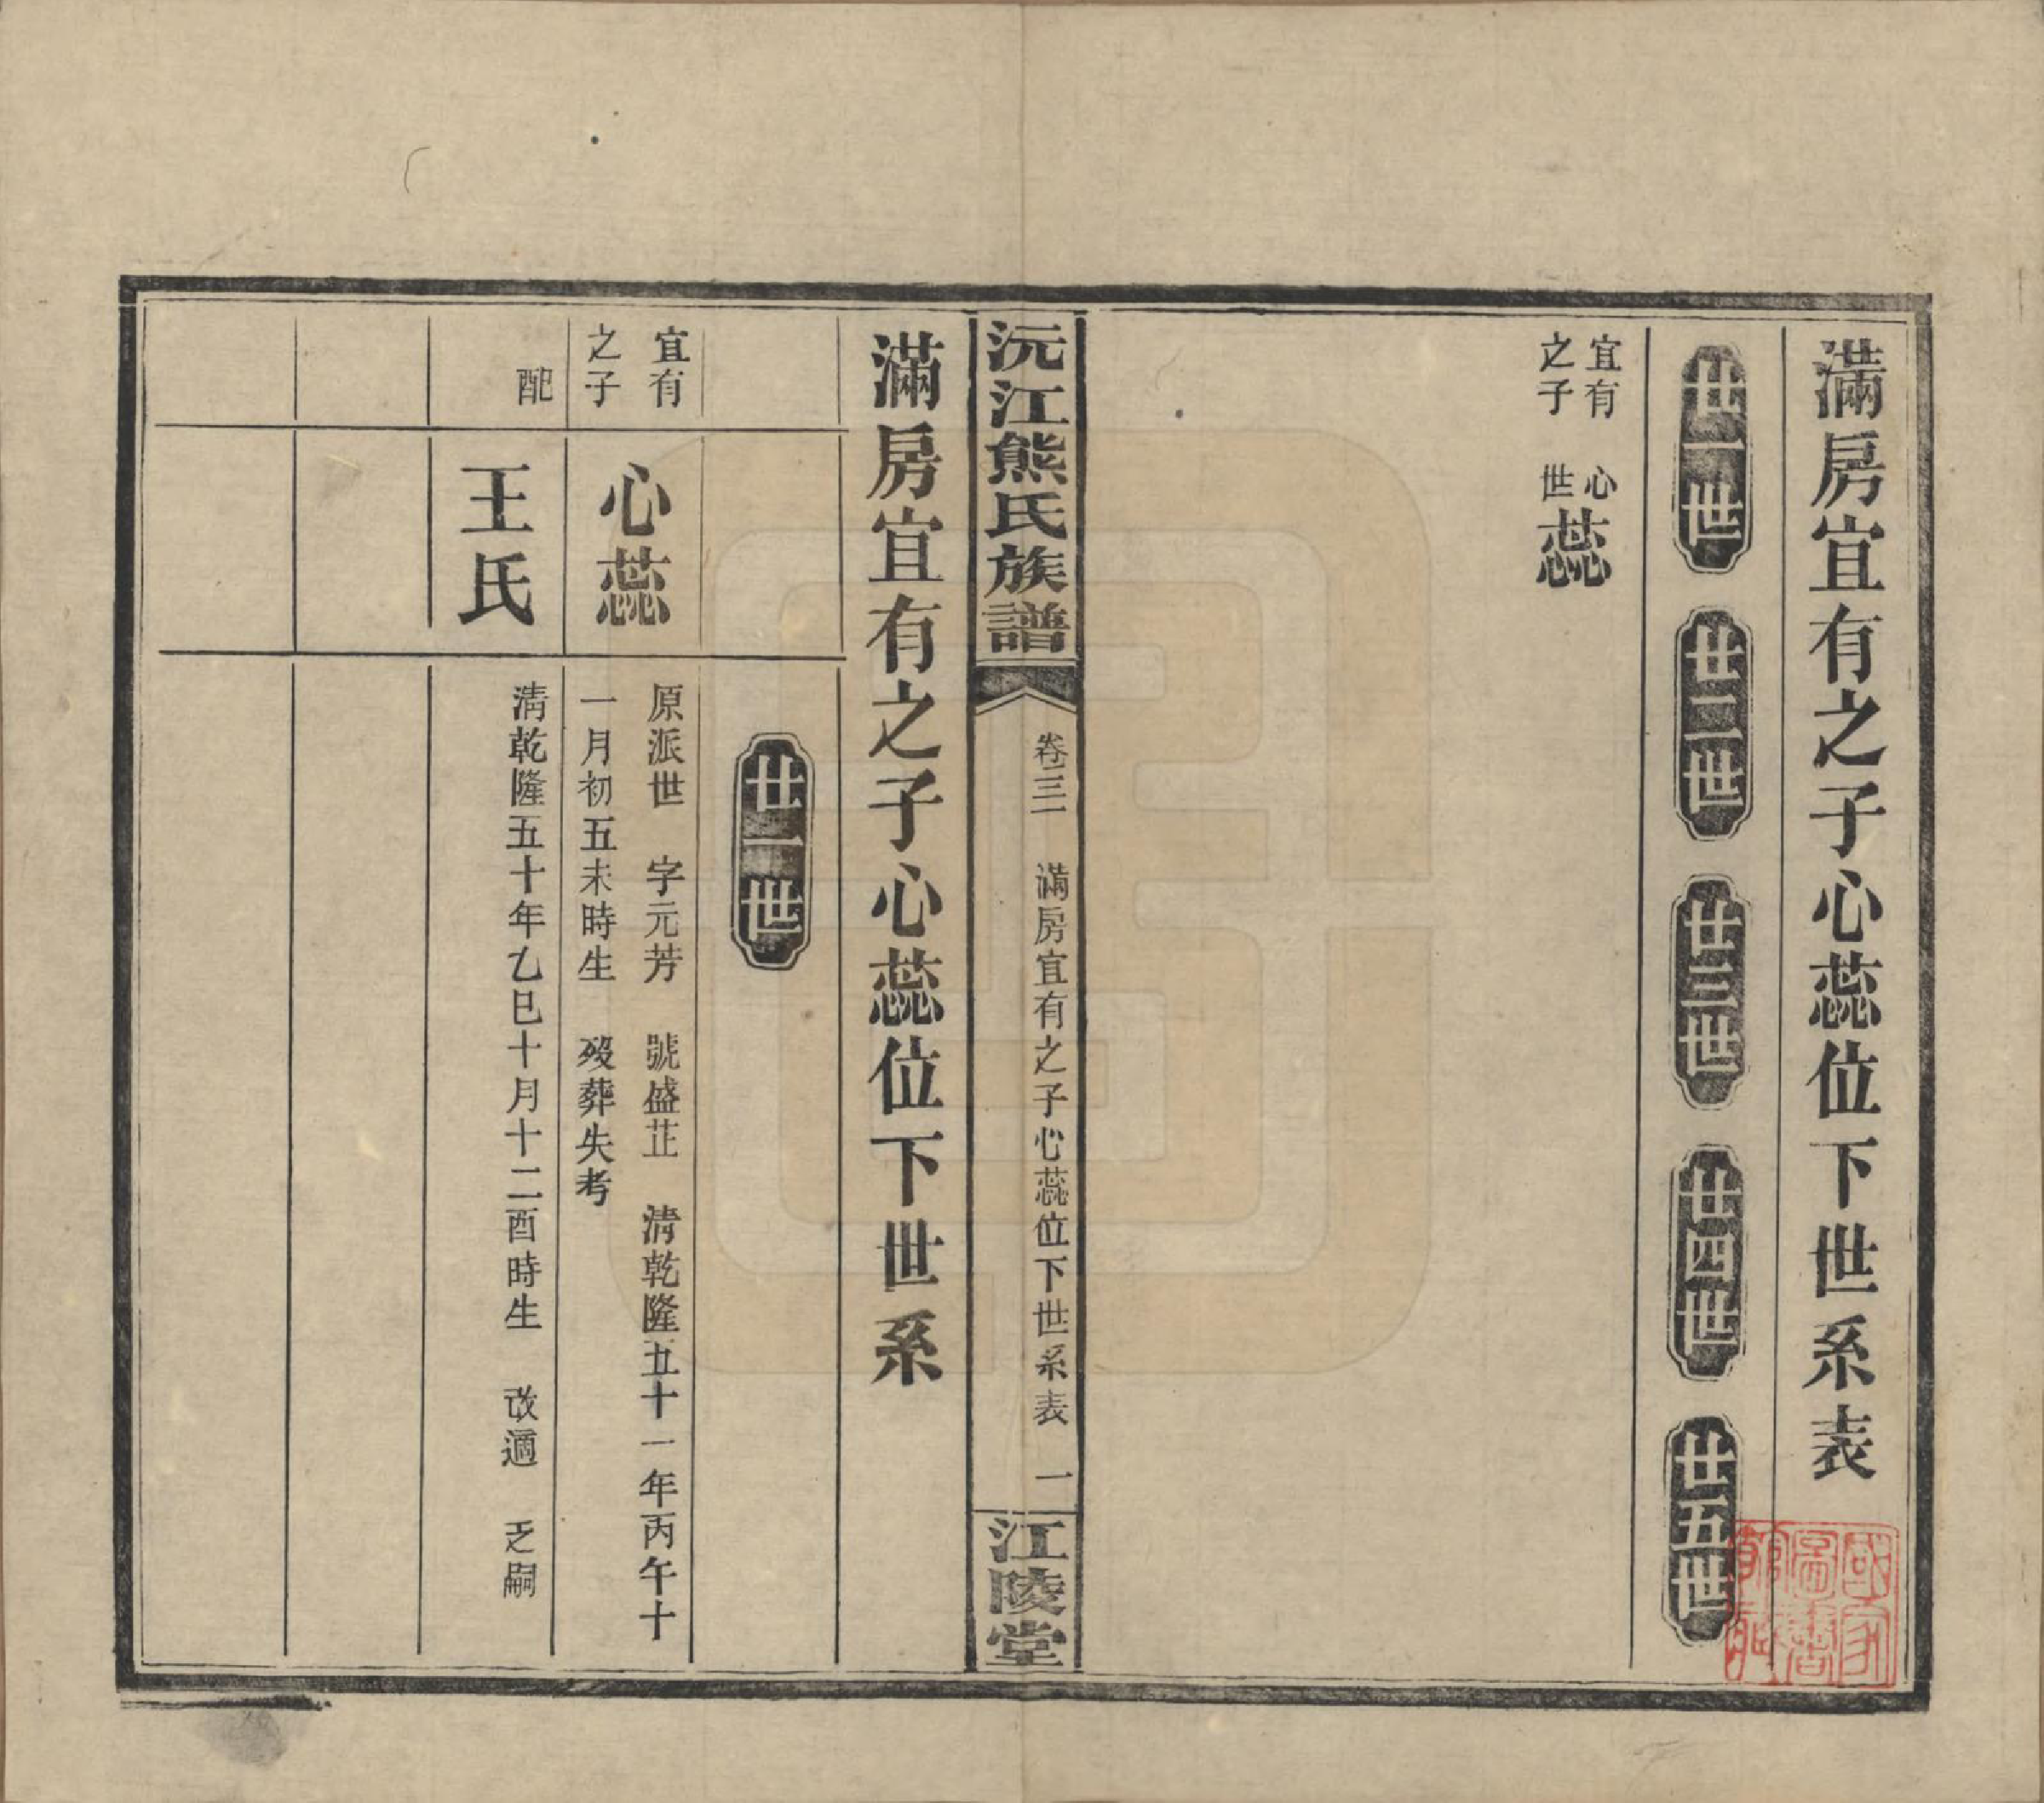 滿房宜有之子心蕊位下世系表
廿一世
廿二世
廿三世
廿四世
廿五世
宜有
之子
心
世
蕊
沅江熊氏族譜
卷三一
滿房宜有之子心蕊位下世系表
一
江陵堂
滿房宜有之子心蕊位下世系
廿一世
宜有
之子
心蕊
原派世 字元芳 號盛芷 清乾隆五十一年丙午十
一月初五未時生 歿葬失考
配
王氏
清乾隆五十年乙巳十月十二酉時生 改適 乏嗣
國家圖書館藏